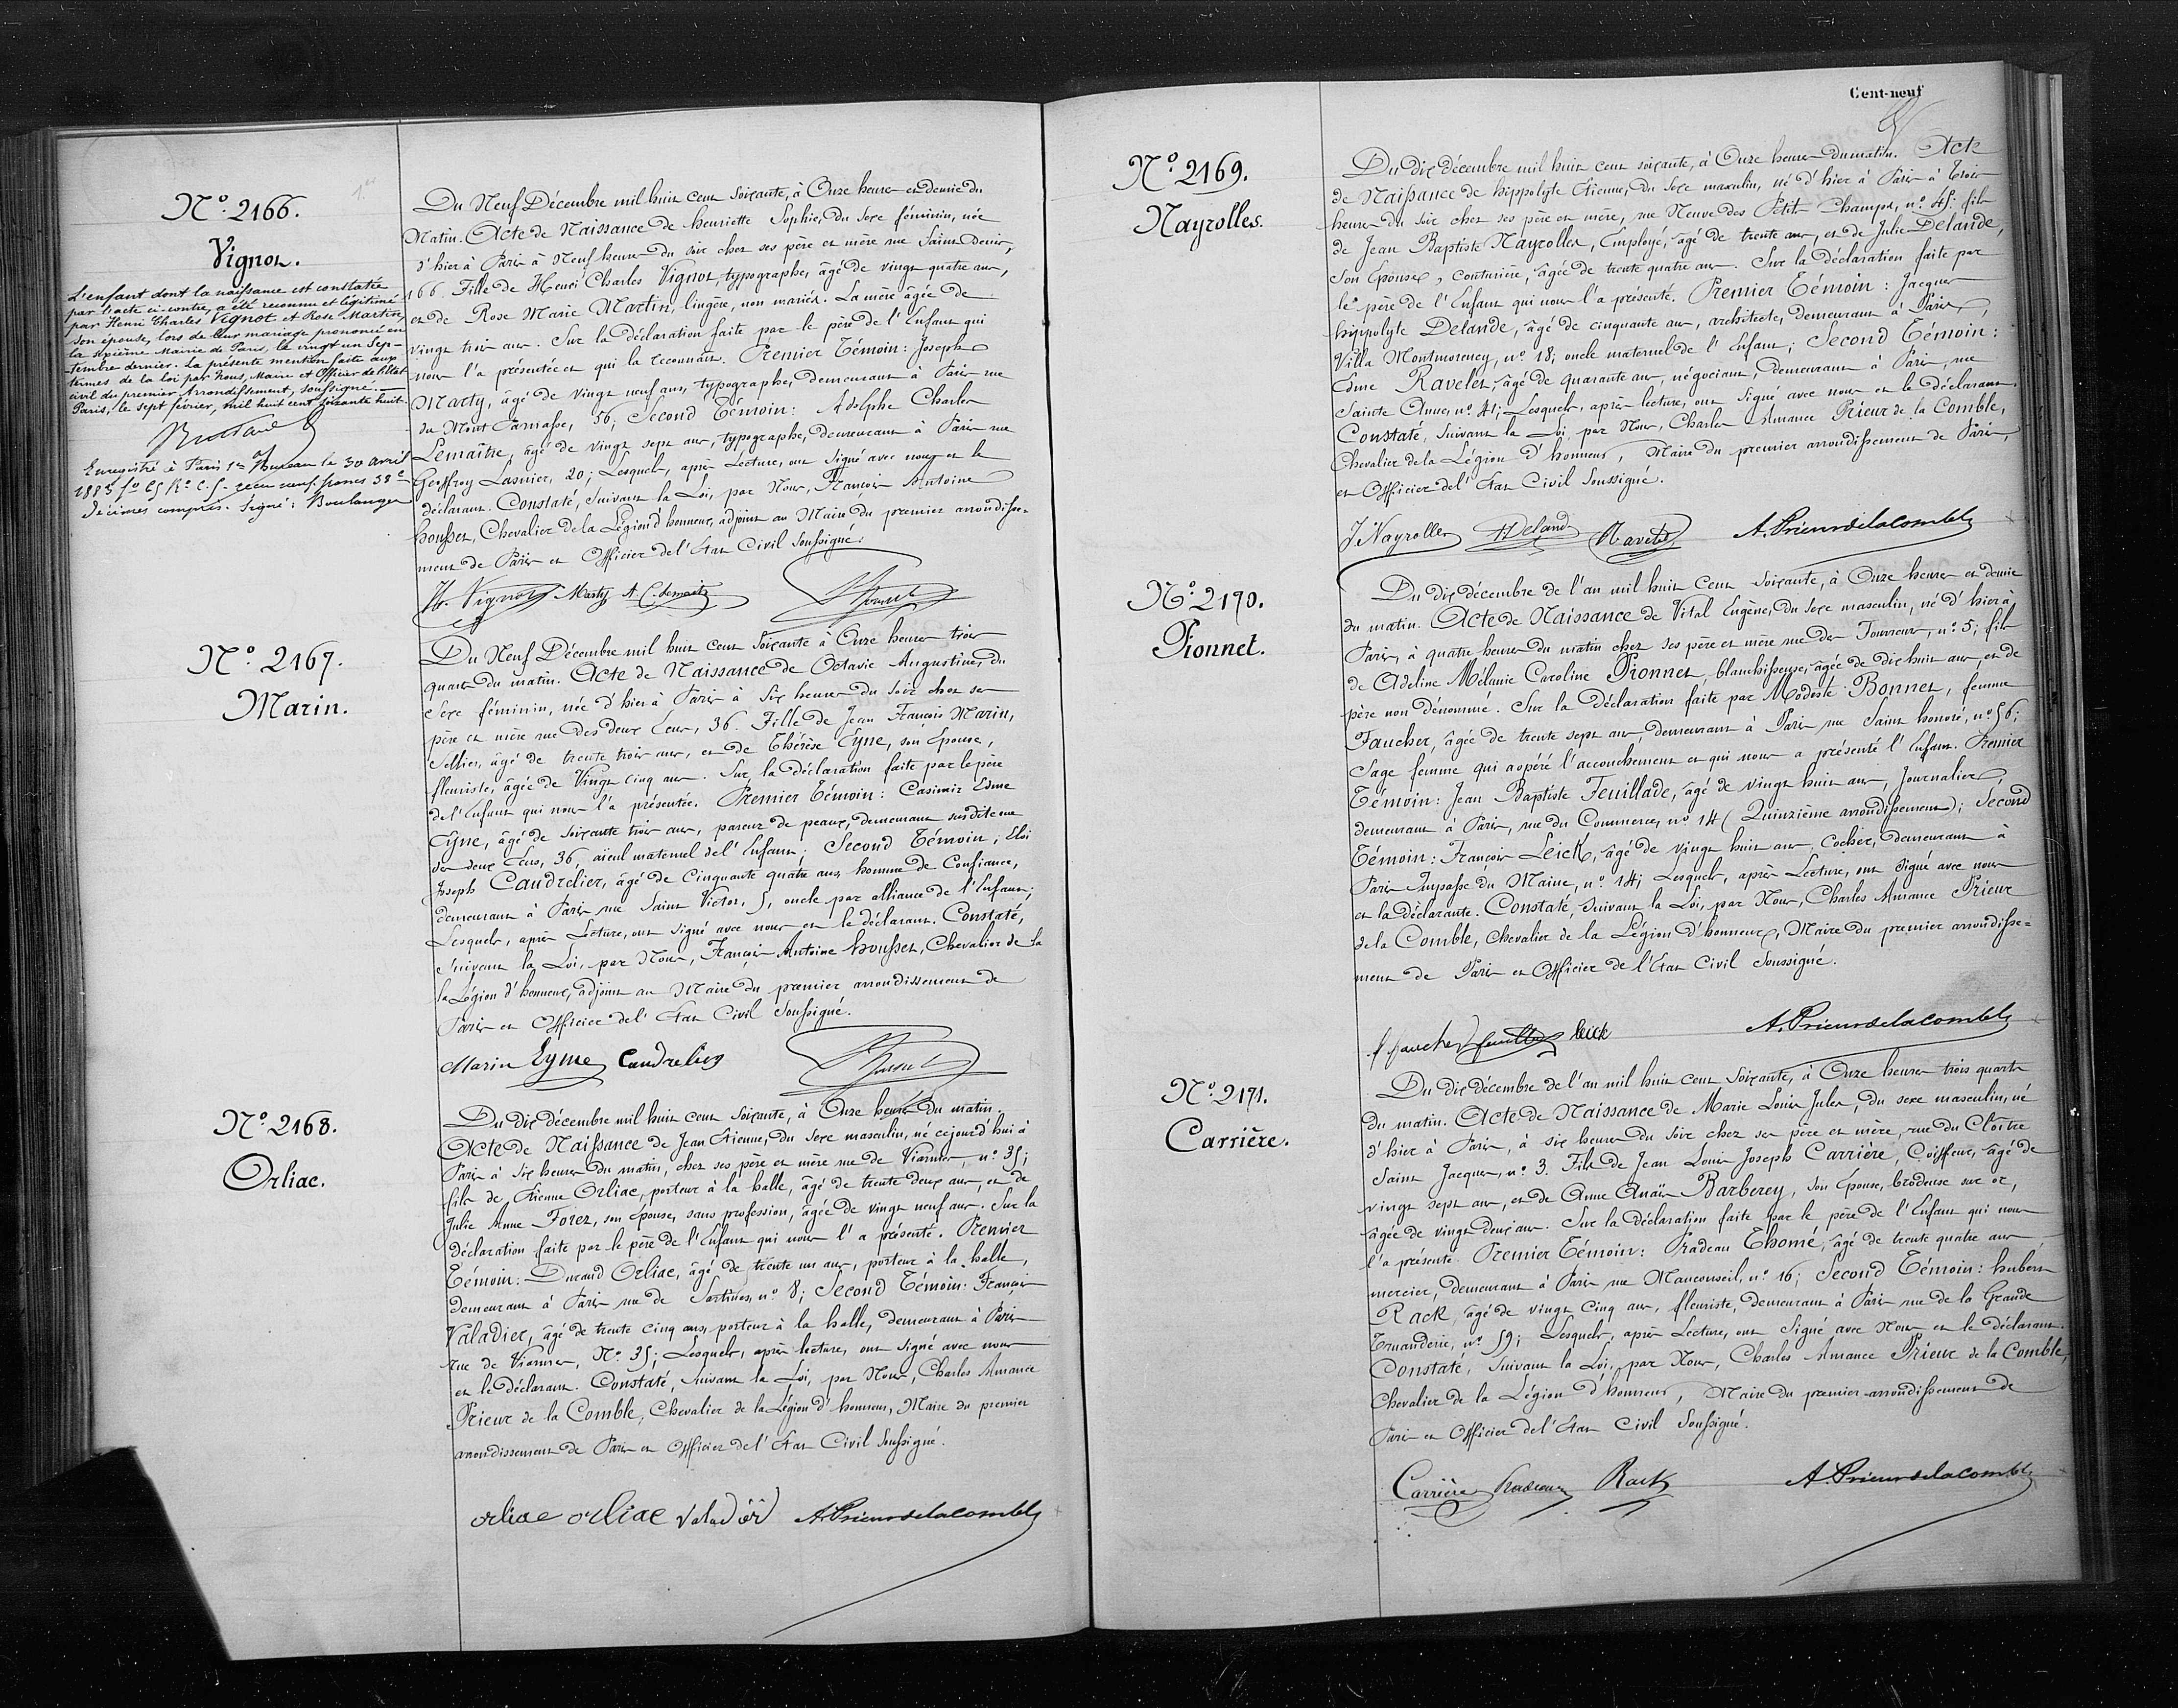 Nº 2166.
Vignot.
L'enfant dont la naissance est constatée
par l'acte ci-contre, a été reconnu et légitimé
par Henri Charles Vignot et Rose Martin,
son épouse, lors de leur mariage prononcé en
la sixième Mairie de Paris, le vingt un Sep-
tembre dernier. La présente mention faite aux
termes de la loi par Nous, Maire et Officier de l'état
civil du premier Arrondissement, soussigné.
Paris, le sept février, mil huit cent soixante huit.
Enregistré à Paris 1er Bureau le 30 avril
1883 fo
reçu neuf francs 38c
décimes compris. Signé: Boulanger
Du Neuf Décembre mil huit cent soixante, à Onze heures et demie du
Matin. Acte de Naissance de henriette Sophie, du sexe féminin, née
d'hier à Paris à Neuf heures du soir chez ses père et mère rue Saint Denis,
166. Fille de Henri Charles Vignot, typographe, âgé de vingt quatre ans,
et de Rose Marie Martin, lingère, non mariés. La mère âgée de
vingt trois ans. Sur la déclaration faite par le père de l'Enfant qui
nous l'a présentée et qui la reconnait. Premier Témoin: Joseph
Marty, âgé de vingt neuf ans, typographe, demeurant à Paris rue
du Mont Parnasse, 56; Second Témoin: Adolphe Charles
Lemaître, âgé de vingt sept ans, typographe, demeurant à Paris rue
Geoffroy Lasnier, 20; Lesquels, après Lecture, ont signé avec nous et le
déclarant. Constaté, suivant la Loi, par Nous, François Antoine
housset, Chevalier de la Légion d'honneur, adjoint au Maire du premier arrondisse-
ment de Paris et Officier de l'Etat Civil soussigné.
H. Vignot Marty A. C. Lemaitre
Nº 2167.
Marin.
Du Neuf Décembre mil huit cent soixante à Onze heures trois
quarts du matin. Acte de Naissance de Octavie Augustine, du
sexe féminin, née d'hier à Paris à six heures du soir chez ses
père et mère rue des deux Ecus, 36. Fille de Jean François Marin,
Sellier, âgé de trente trois ans, et de Thérèse Eyme, son Epouse,
fleuriste, âgée de Vingt cinq ans. Sur la déclaration faite par le père
de l'Enfant qui nous l'a présentée. Premier Témoin: Casimir Edme
Eyme, âgé de soixante trois ans, pareur de peaux, demeurant susdite rue
des deux Ecus, 36, aïeul maternel de l'Enfant; Second Témoin; Eloi
Joseph Caudrelier, âgé de Cinquante quatre ans, homme de Confiance,
demeurant à Paris rue Saint Victor, 5, oncle par alliance de l'Enfant;
Lesquels, après Lecture, ont signé avec nous et le déclarant. Constaté,
suivant la Loi, par Nous, François Antoine housset, Chevalier de la
la Légion d'honneur, adjoint au Maire du premier arrondissement de
Paris et Officier de l'Etat Civil soussigné.
Marin Eyme Caudrelier
Nº 2168.
Orliac.
Du dix décembre mil huit cent soixante, à Onze heures du matin.
Acte de Naissance de Jean Etienne, du sexe masculin, né cejourd'hui à
Paris à six heures du matin, chez ses père et mère rue de Viarmes, nº 35;
fils de Etienne Orliac, porteur à la halle, âgé de trente deux ans, et de
Julie Anne Forez, son épouse, sans profession, âgée de vingt neuf ans. Sur la
déclaration faite par le père de l'Enfant qui nous l'a présenté. Premier
Témoin: Durand Orliac, âgé de trente un ans, porteur à la halle,
demeurant à Paris rue de Sartines, nº 8; Second Témoin: François
Valadier, âgé de trente cinq ans, porteur à la halle, demeurant à Paris
rue de Viarmes, Nº 35; Lesquels, après lecture, ont signé avec nous
et le déclarant. Constaté, suivant la Loi, par Nous, Charles Amance
Prieur de la Comble, Chevalier de la Légion d'honneur, Maire du premier
arrondissement de Paris et Officier de l'Etat Civil soussigné.
orliac orliac valadier A. Prieur de la comble
Cent-neuf
Nº 2169.
Nayrolles.
Du dix décembre mil huit cent soixante, à Onze heures du matin. Acte
de Naissance de hippolyte Etienne, du sexe masculin, né d'hier à Paris à trois
heures du soir chez ses père et mère, rue Neuve des Petits Champs, nº 45; fils
de Jean Baptiste Nayrolles, Employé, âgé de trente ans, et de Julie Delande,
son épouse, couturière, âgée de trente quatre ans. Sur la déclaration faite par
le père de l'Enfant qui nous l'a présenté. Premier Témoin: Jacques
hippolyte Delande, âgé de cinquante ans, architecte, demeurant à Paris,
Villa Montmorency, nº 18; oncle maternel de l'Enfant; Second Témoin:
Edme Ravelet, âgé de quarante ans, négociant, demeurant à Paris, rue
Sainte Anne, nº 41; Lesquels, après lecture, ont signé avec nous et le déclarant.
Constaté, suivant la Loi, par Nous, Charles Amance Prieur de la Comble,
Chevalier de la Légion d'honneur, Maire du premier arrondissement de Paris,
et Officier de l'Etat Civil soussigné.
J. Nayrolles HDelande Ravelet A. Prieur de la comble
Nº 2170.
Pionnet.
Du dix décembre de l'an mil huit cent soixante, à Onze heures et demie
du matin. Acte de Naissance de Vital Eugène, du sexe masculin, né d'hier à
Paris, à quatre heures du matin chez ses père et mère rue des Fourreurs, nº 5; fils
de Adeline Mélanie Caroline Pionnet, blanchisseuse, âgée de dix huit ans, et de
père non dénommé. Sur la déclaration faite par Modeste Bonnet, femme
Faucher, âgée de trente sept ans, demeurant à Paris rue Saint honoré, nº 56;
Sage femme qui a opéré l'accouchement et qui nous a présenté l'Enfant. Premier
Témoin: Jean Baptiste Feuillade, âgé de vingt huit ans, Journalier,
demeurant à Paris, rue du Commerce, nº 14 (Quinzième arrondissement); Second
Témoin: François Leick, âgé de vingt huit ans, Cocher, demeurant à
Paris Impasse du Maine, nº 14; Lesquels, après Lecture, ont signé avec nous
et la déclarante. Constaté, suivant la Loi, par Nous, Charles Amance Prieur
de la Comble, Chevalier de la Légion d'honneur, Maire du premier arrondisse=
ment de Paris et Officier de l'Etat Civil soussigné.
f faucher feuillade leick A. Prieur de la comble
Nº 2171.
Carrière.
Du dix décembre de l'an mil huit cent soixante, à Onze heures trois quarts
du matin. Acte de Naissance de Marie Louis Jules, du sexe masculin, né
d'hier à Paris, à six heures du soir chez ses père et mère, rue du Cloître
Saint Jacques, nº 3. Fils de Jean Louis Joseph Carrière, Coiffeur, âgé de
vingt sept ans, et de Anne Anaïs Barberey, son épouse, brodeuse sur or,
âgée de vingt deux ans. Sur la déclaration faite par le père de l'Enfant qui nous
l'a présenté. Premier Témoin: Pradeau Thomé, âgé de trente quatre ans
mercier, demeurant à Paris rue Mauconseil, nº 16; Second Témoin: hubert
Rack, âgé de vingt cinq ans, fleuriste, demeurant à Paris rue de la Grande
Truanderie, nº 59; Lesquels, après Lecture, ont signé avec Nous et le déclarant.
Constaté, suivant la Loi, par Nous, Charles Amance Prieur de la Comble,
Chevalier de la Légion d'honneur, Maire du premier arrondissement de
Paris et Officier de l'Etat Civil soussigné.
Carrière Pradeau Rack A. Prieur de la comble